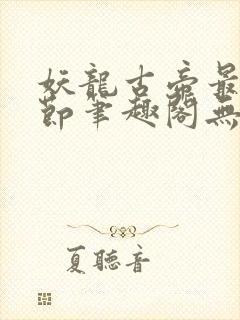 妖龍古帝最
節筆趣閣無
夏聽音